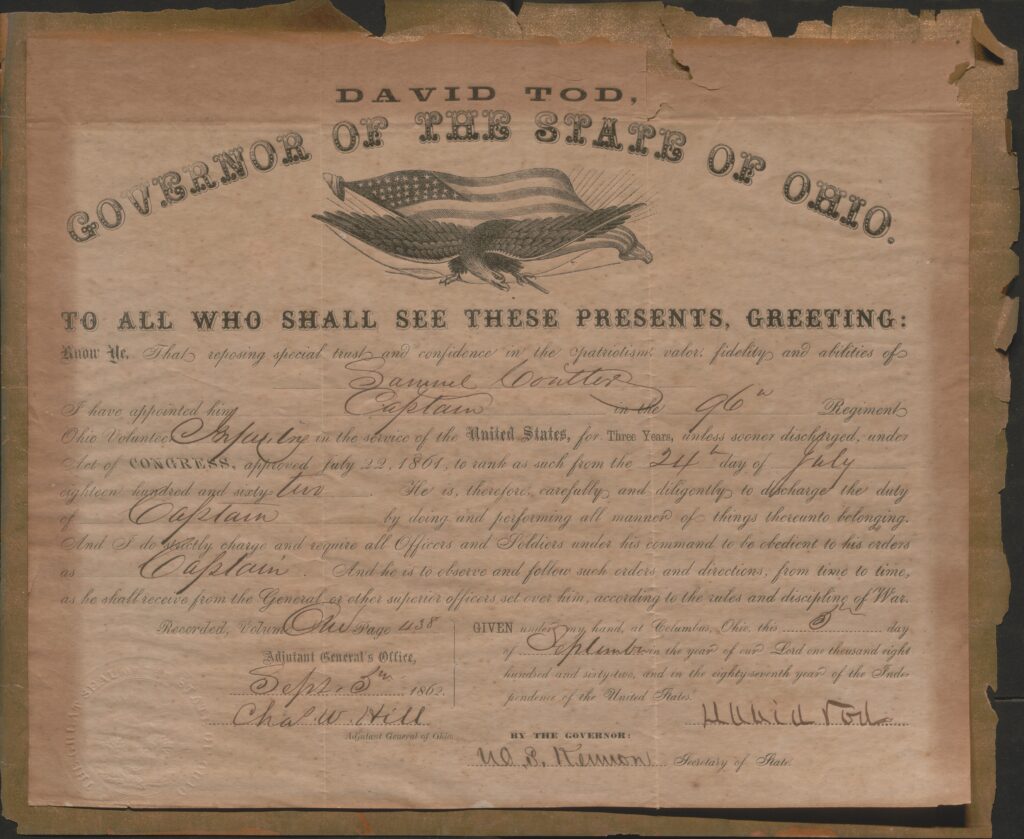 DAVID TOD,
GOVERNOR OF THE STATE OF OHIO.
TO ALL WHO SHALL SEE THESE PRESENTS, GREETING:
Know Ye, That reposing special trust and confidence in the patriotism, valor, fidelity and abilities of
Samuel Coulter
I have appointed him Captain in the 96th Regiment
Ohio Volunteer Infantry in the service of the United States, for Three Years, unless sooner discharged, under
Act of CONGRESS, approved July 22, 1861, to rank as such from the 24th day of July
eighteen hundred and sixty-two. He is, therefore, carefully and diligently to discharge the duty
of Captain by doing and performing all manner of things thereunto belonging.
And I do strictly charge and require all Officers and Soldiers under his command to be obedient to his orders
as Captain. And he is to observe and follow such orders and directions, from time to time,
as he shall receive from the General or other superior officers set over him, according to the rules and discipline of War.
Recorded, Volume One Page 438
Adjutant General's Office,
Sept. 5th 1862
Chas W. Hill
Adjutant General of Ohio.
GIVEN under my hand, at Columbus, Ohio, this 5th day
of September in the year of our Lord one thousand eight
hundred and sixty-two, and in the eighty-seventh year of the Inde-
pendence of the United States.
David Tod
BY THE GOVERNOR:
W. S. Kennon Secretary of State.